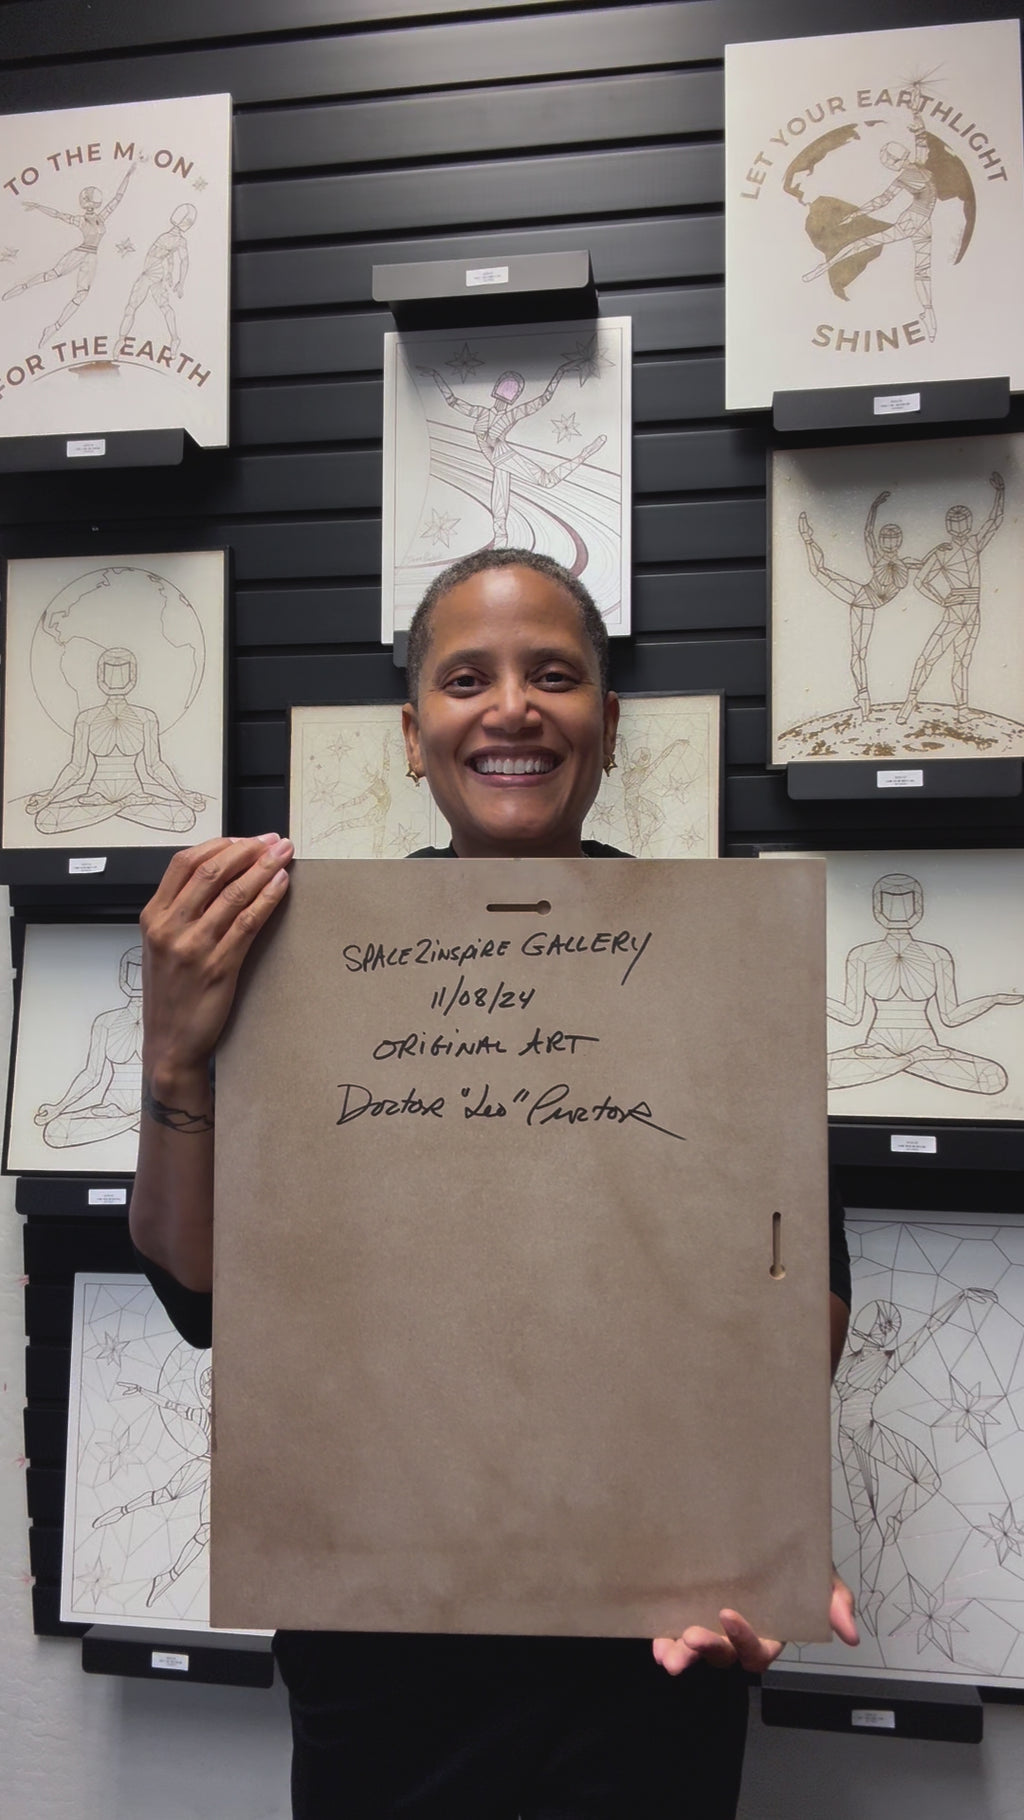 TO THE MOON
FOR THE EARTH
LET YOUR EARTHLIGHT
SHINE
SPACE2inspiRE GALLERY
11/08/24
ORiGiNAL ART
Doctor "Leo" Proctor